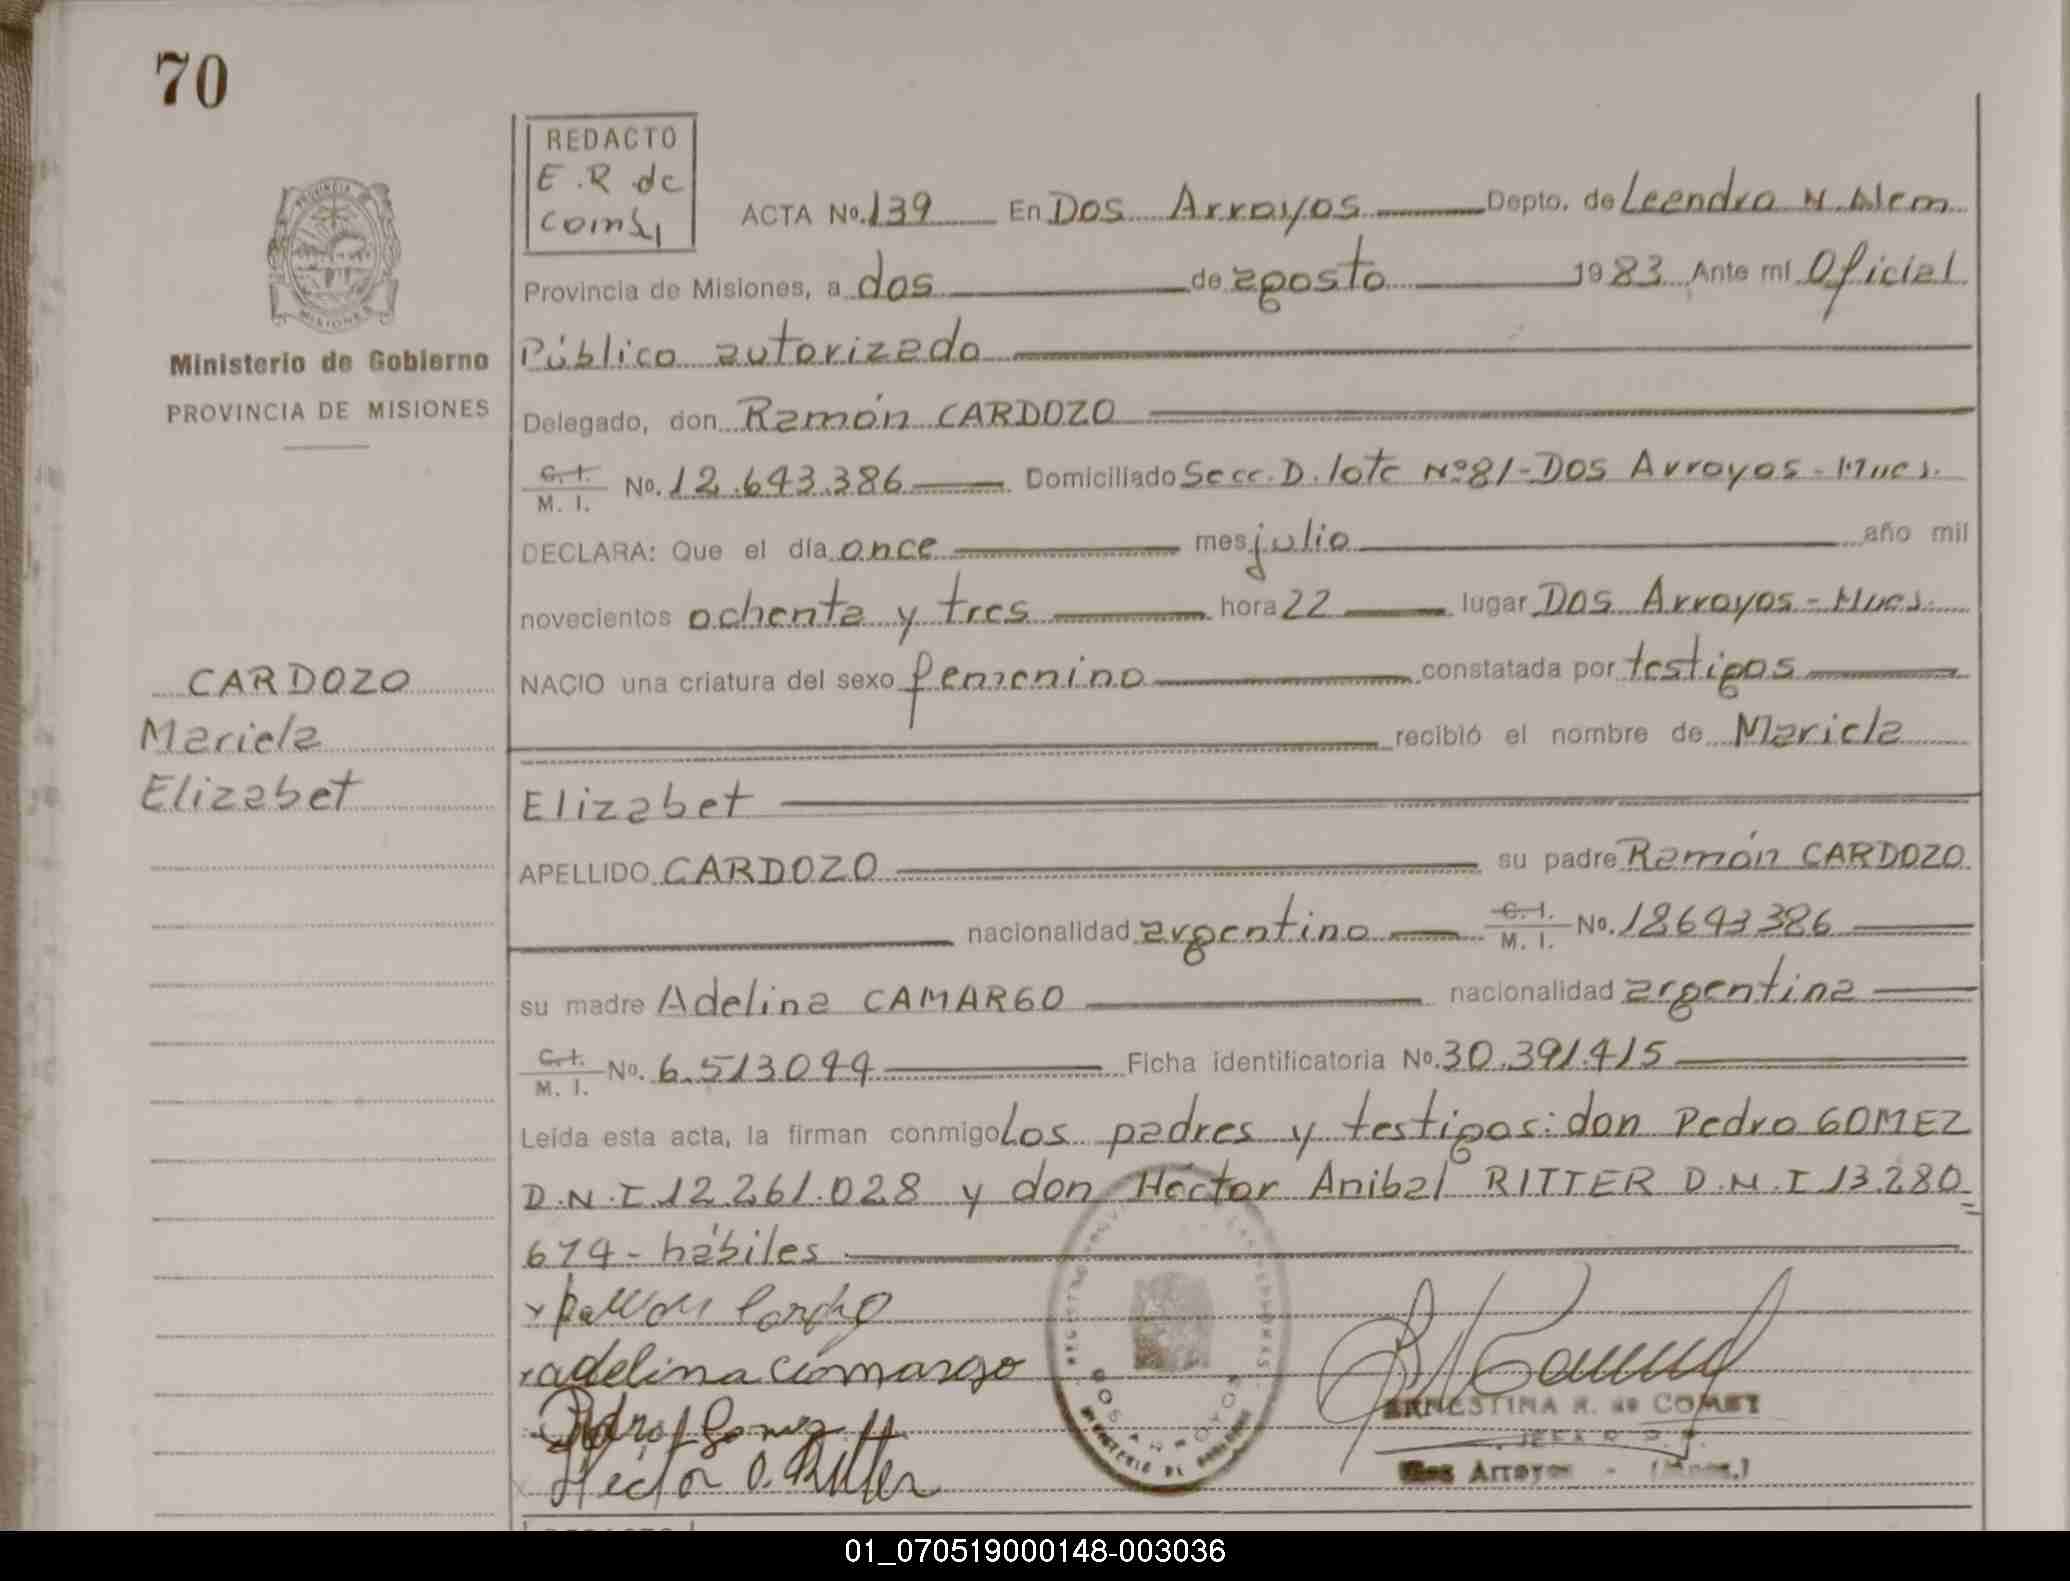 70
REDACTO
E.R de
Comet
PROVINCIA
MISIONES
Ministerio de Gobierno
PROVINCIA DE MISIONES
ACTA No. 139 En Dos Arroyos Depto. de Leandro N. Alem
Provincia de Misiones, a dos de agosto 1983 Ante mí Oficial
Público autorizado
Delegado, don Ramón CARDOZO
C.I. M.I. No. 12.643.386 Domiciliado Secc. D. lote Nº 81-Dos Arroyos-Mnes.
DECLARA: Que el día once mes julio año mil
novecientos ochenta y tres hora 22 lugar Dos Arroyos-Mnes.
CARDOZO
Mariela
Elizabet
NACIO una criatura del sexo femenino constatada por testigos
recibió el nombre de Mariela
Elizabet
APELLIDO CARDOZO su padre Ramón CARDOZO
nacionalidad argentino C.I. M.I. No. 18643386
su madre Adelina CAMARGO nacionalidad argentina
C.I. M.I. No. 6.513044 Ficha identificatoria No. 30.391.415
Leída esta acta, la firman conmigo Los padres y testigos: don Pedro GOMEZ
D.N.I 12.261.028 y don Héctor Anibal RITTER D.N.I 13.280=
674- hábiles
adelina camargo
Pedro Gomez
Hector A. Ritter
DOS ARROYOS
MINISTERIO DE GOBIERNO
ERNESTINA R. de COMET
JEFA R. P.
Dos Arroyos - (Mnes.)
01_070519000148-003036